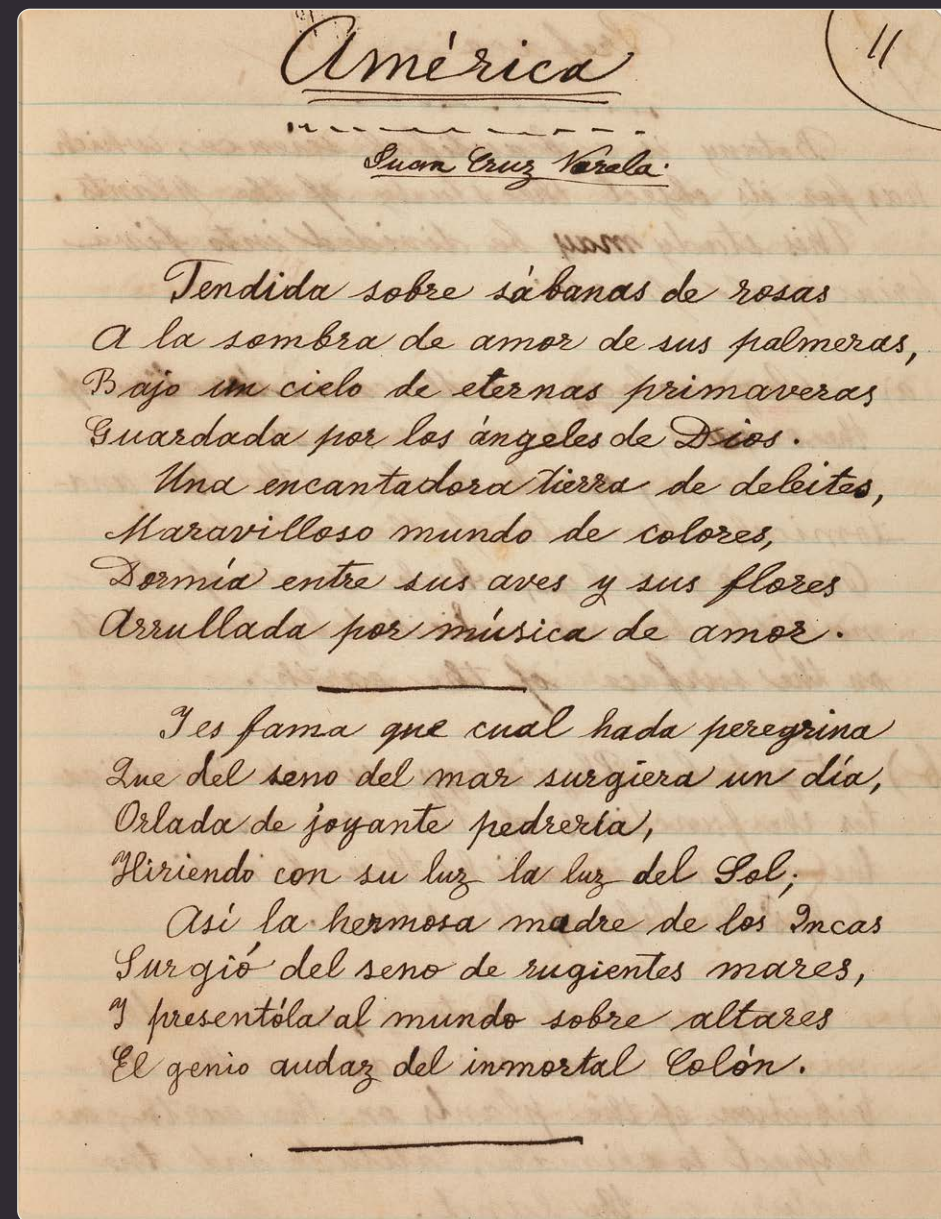 América
11
Juan Cruz Varela.
Tendida sobre sábanas de rosas
A la sombra de amor de sus palmeras,
Bajo un cielo de eternas primaveras
Guardada por los ángeles de Dios.
Una encantadora tierra de deleites,
Maravilloso mundo de colores,
Dormía entre sus aves y sus flores
Arrullada por música de amor.
I es fama que cual hada peregrina
Que del seno del mar surgiera un día,
Orlada de joyante pedrería,
Hiriendo con su luz la luz del Sol;
Así la hermosa madre de los Incas
Surgió del seno de rugientes mares,
I presentóla al mundo sobre altares
El genio audaz del inmortal Colón.